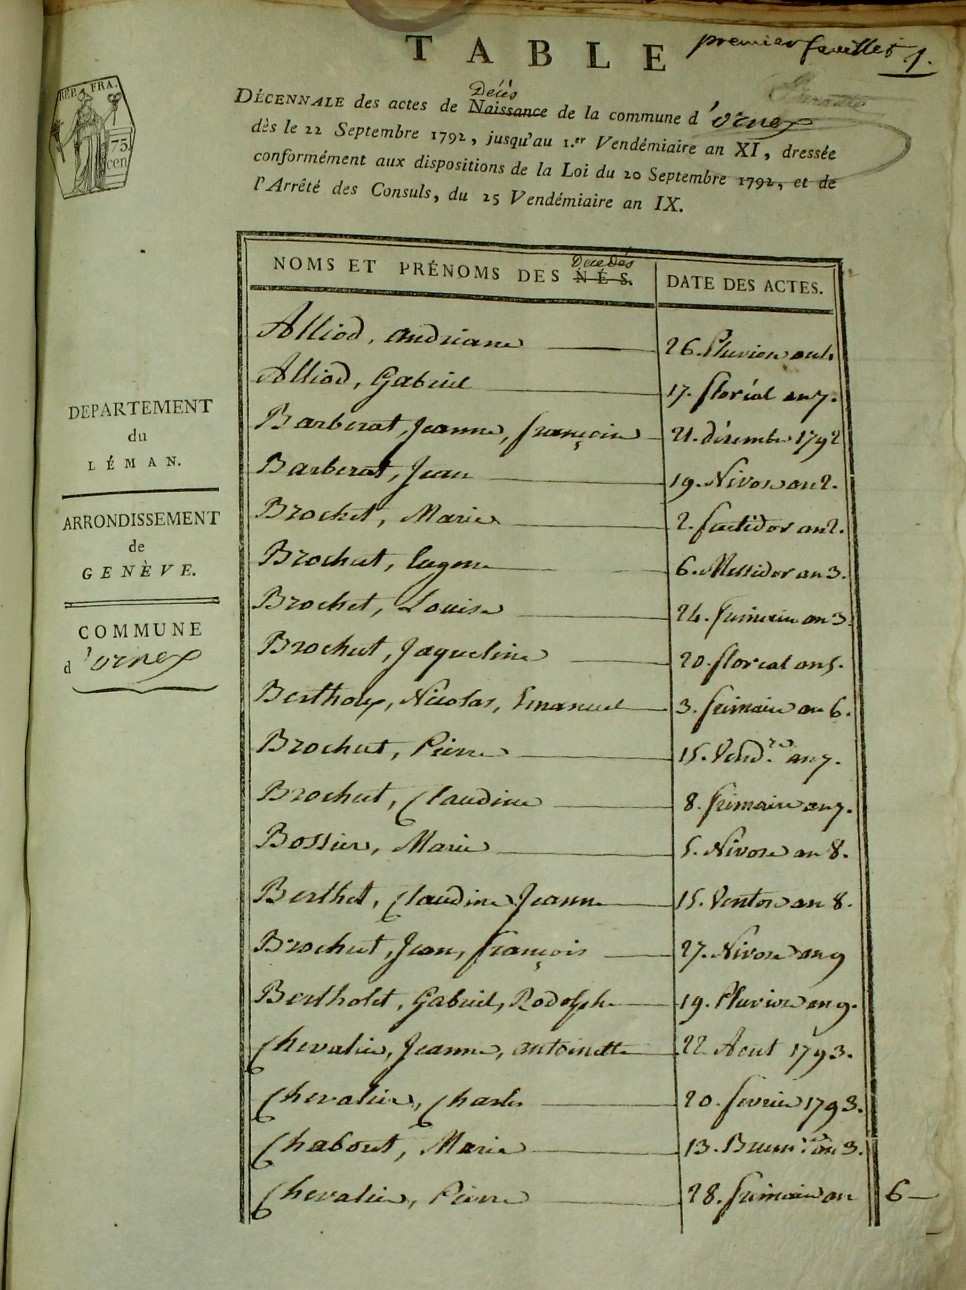 premier feuillet 1.
TABLE
REP. FRA.
75
cen
Décès
DÉCENNALE des actes de Naissance de la commune d'ornex
dès le 22 Septembre 1792, jusqu'au 1.er Vendémiaire an XI, dressée
conformément aux dispositions de la Loi du 20 Septembre 1792, et de
l'Arrêté des Consuls, du 25 Vendémiaire an IX.
DEPARTEMENT
du
LÉMAN.
ARRONDISSEMENT
de
GENÈVE.
COMMUNE
d'ornex
Décédés
NOMS ET PRÉNOMS DES NÉS. DATE DES ACTES.
Alliod, andriane 26. Pluviose an
Alliod, Gabriel 17. floréal an 7.
Barberat, Jeanne, françoise 21. décembre 1792
Barberat, Jean 19. Nivose an 2.
Brochet, Marie 2. fructidor an 2.
Brochut, Eugene 6. Messidor an 3.
Brochet, Louise 24. frimaire an 3.
Brochut, Jaqueline 20. floréal an 5.
Berthoux, Nicolas, Emanuel 3. frimaire an 6.
Brochut, Pierre 15. Vend.re an 7.
Brochut, Claudine 8. frimaire an 7.
Bossier, Marie 5. Nivose an 8.
Berthet, Claudine Jeanne 15. Ventose an 8.
Brochut, Jean, françois 27. Nivose an 9
Bertholet, Gabriel, Rodolphe 19. Pluviose an 9.
Chevalier, Jeanne, antoinette 22 Aout 1793.
Chevalier, Charles 20. fevrier 1793.
Chabout, Marie 13. Brum.re an 3.
Chevalier, Pierre 28. frimaire an 6